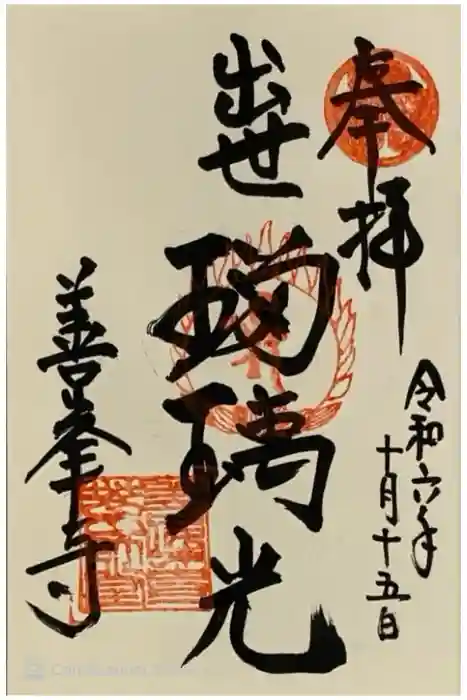 奉拝
令和六年
十月十五日
出世
瑠璃光
善峯寺